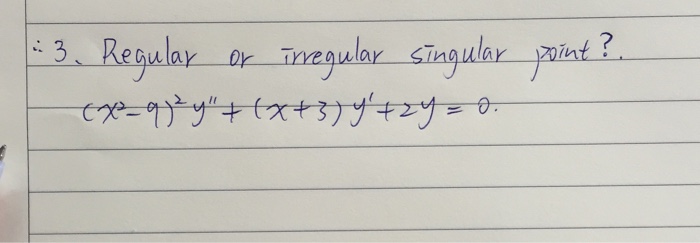 ∴ 3、Regular or irregular singular point?.
(x²-9)² y" + (x+3) y' + 2y = 0.